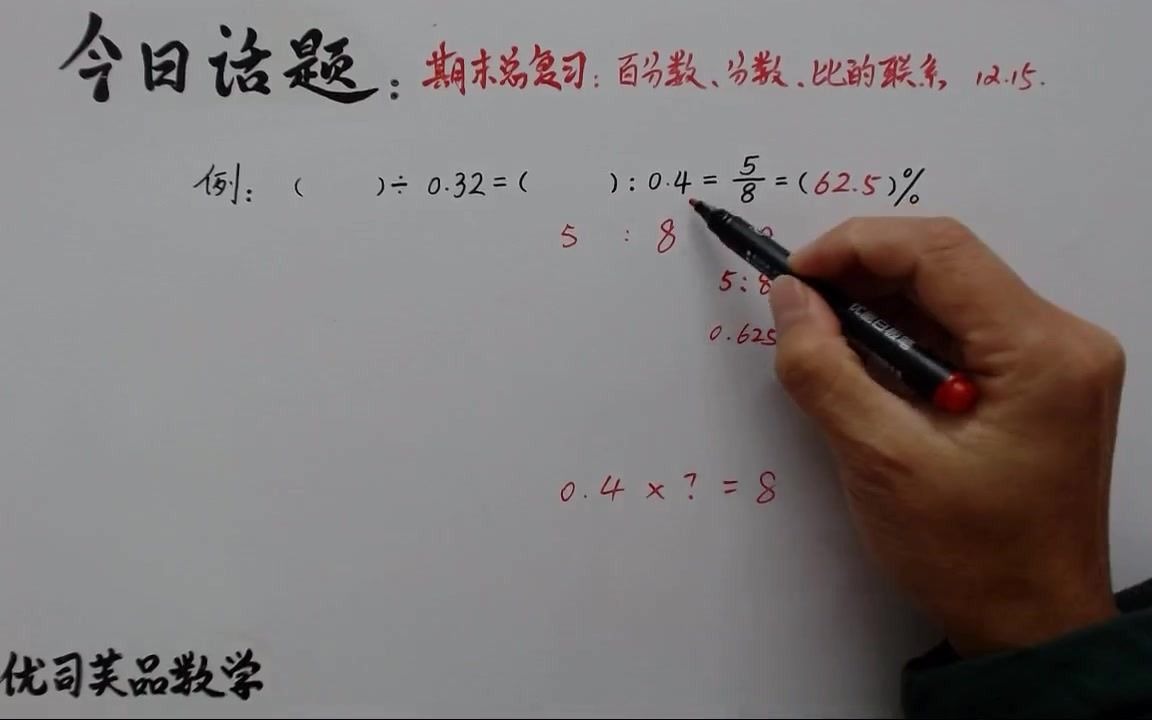 今日话题:期末总复习:百分数、分数、比的联系 12.15.
例:( )÷ 0.32=( ):0.4 = 5/8 =(62.5)%
5 : 8
5:8
0.625
0.4 × ? = 8
优司芙品数学